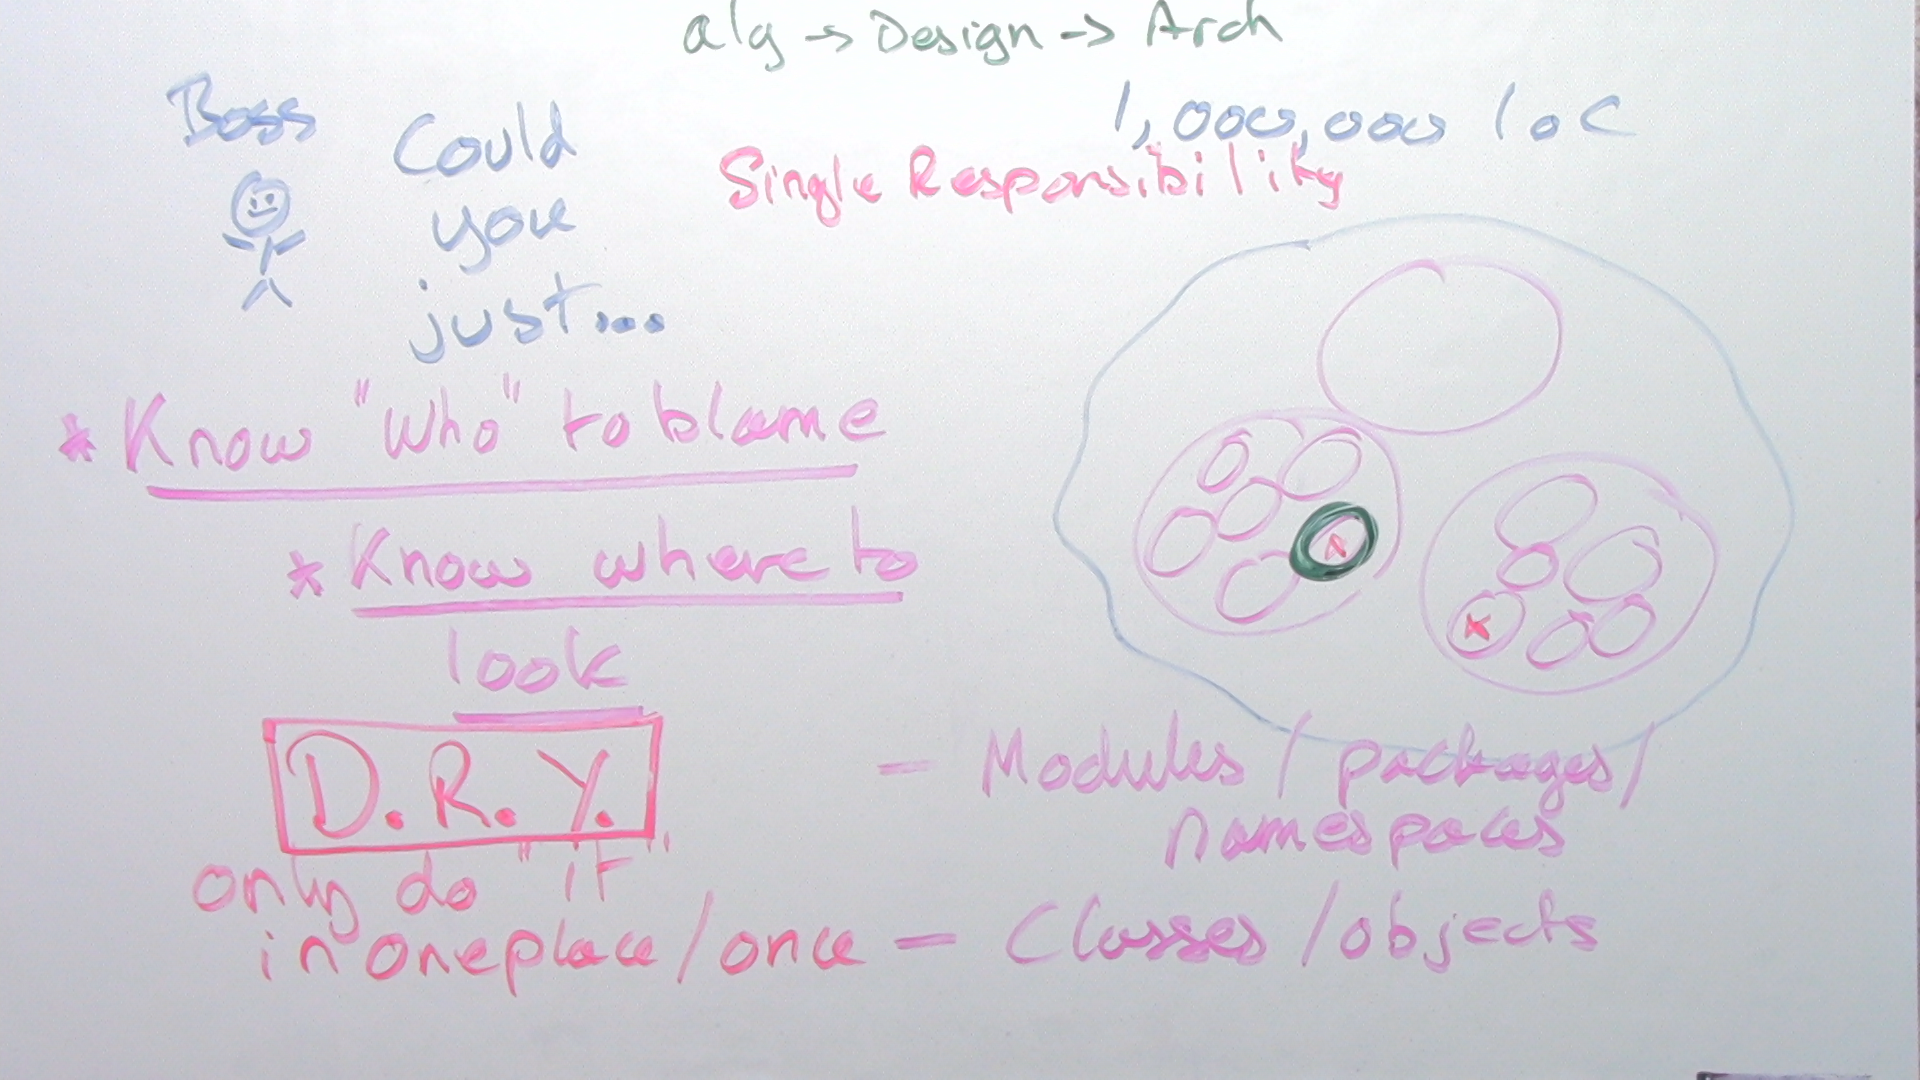 alg → Design → Arch
Boss
Could
you
just...
1,000,000 LoC
Single Responsibility
* Know "who" to blame
* Know where to
look
D.R.Y.
only do "it"
in one place/once
- Modules / packages/
namespaces
- Classes/objects